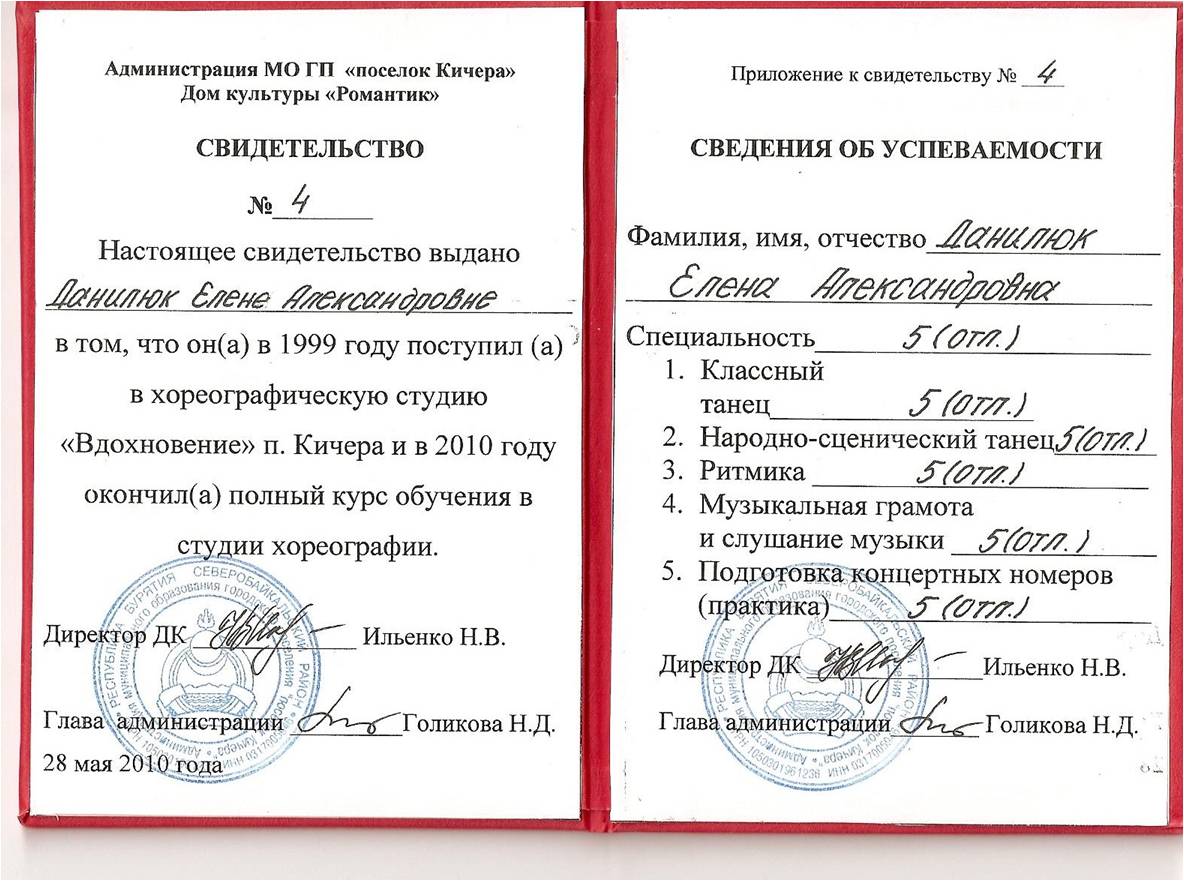 Администрация МО ГП «поселок Кичера»
Дом культуры «Романтик»
СВИДЕТЕЛЬСТВО
№ 4
Настоящее свидетельство выдано
Данилюк Елене Александровне
в том, что он(а) в 1999 году поступил (а)
в хореографическую студию
«Вдохновение» п. Кичера и в 2010 году
окончил(а) полный курс обучения в
студии хореографии.
Директор ДК Ильенко Н.В.
Глава администрации Голикова Н.Д.
28 мая 2010 года
РЕСПУБЛИКА БУРЯТИЯ СЕВЕРОБАЙКАЛЬСКИЙ РАЙОН
Приложение к свидетельству № 4
СВЕДЕНИЯ ОБ УСПЕВАЕМОСТИ
Фамилия, имя, отчество Данилюк
Елена Александровна
Специальность 5 (отл.)
1. Классный
танец 5 (отл.)
2. Народно-сценический танец 5(отл.)
3. Ритмика 5(отл.)
4. Музыкальная грамота
и слушание музыки 5(отл.)
5. Подготовка концертных номеров
(практика) 5 (отл.)
Директор ДК Ильенко Н.В.
Глава администрации Голикова Н.Д.
РЕСПУБЛИКА БУРЯТИЯ СЕВЕРОБАЙКАЛЬСКИЙ РАЙОН
1050301961236 ИНН